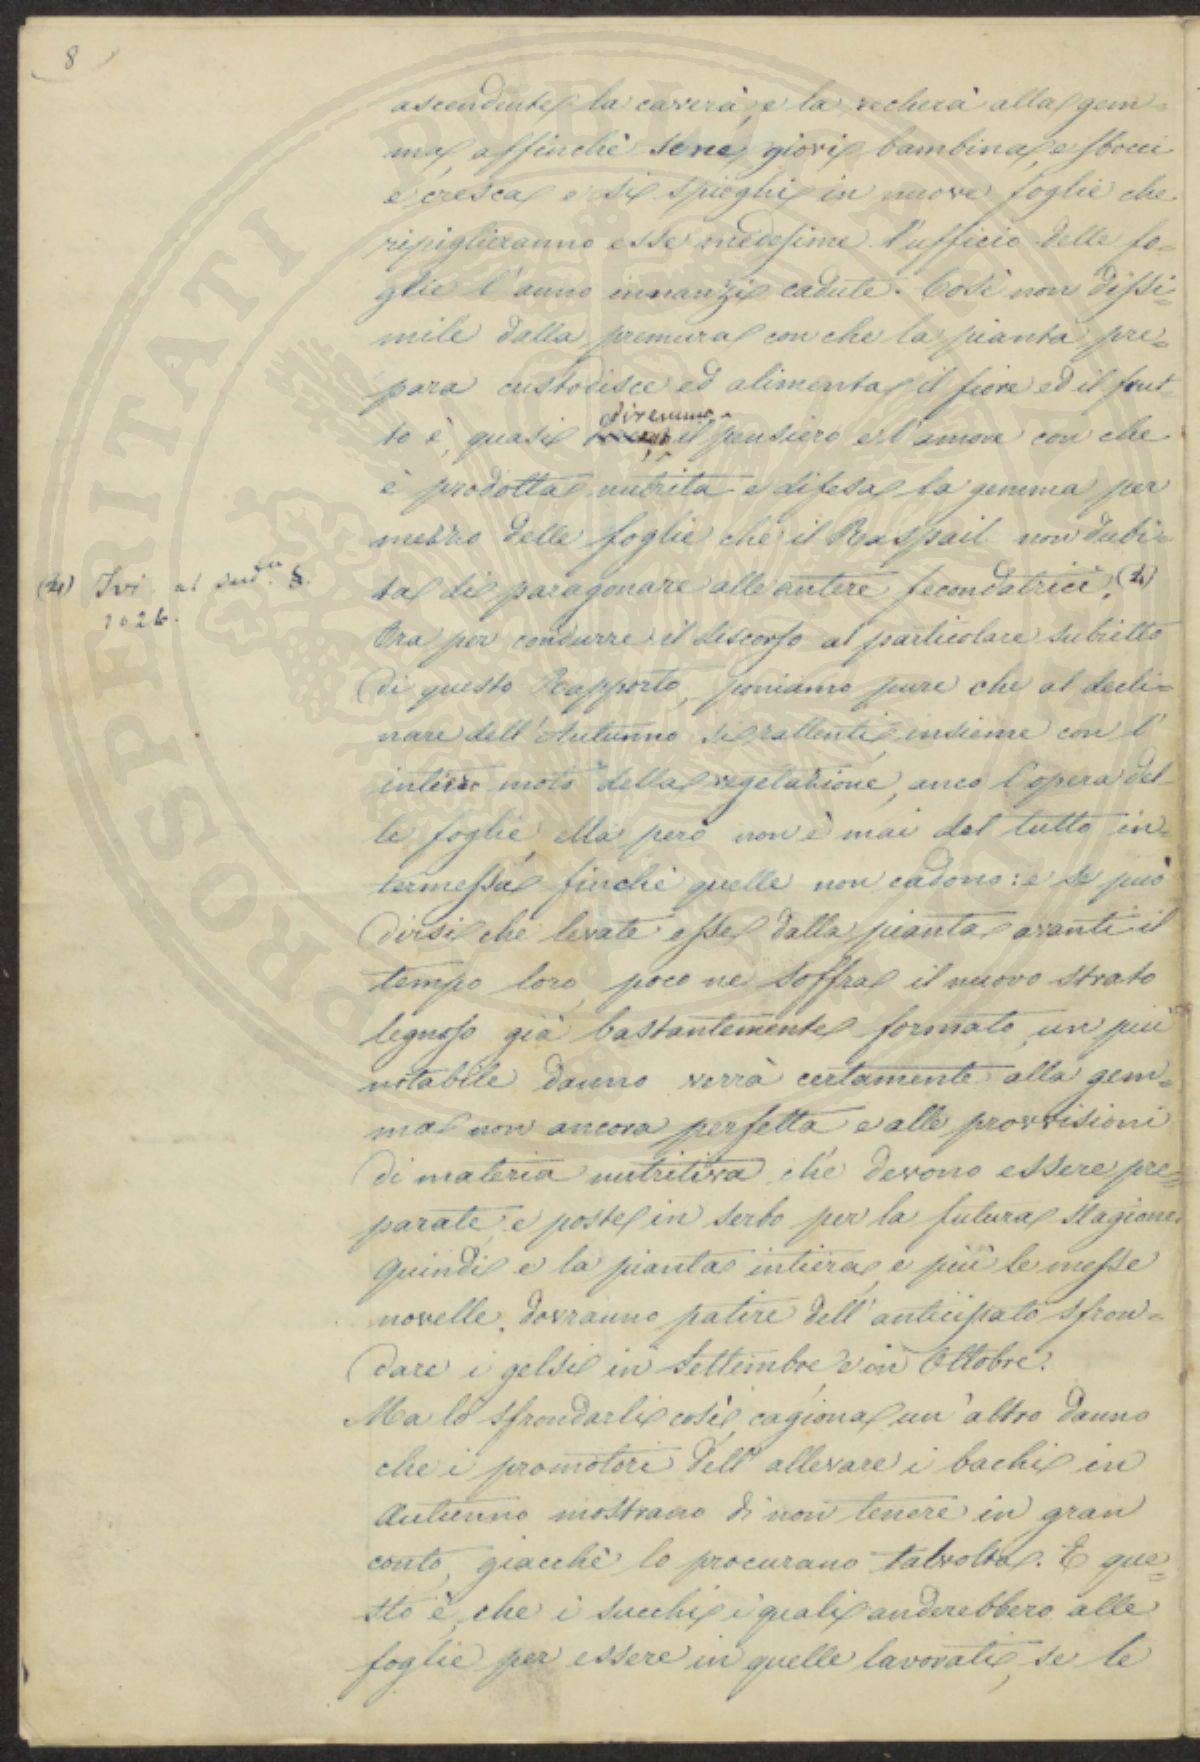 8
ascendente la caverà, e la recherà alla gem=
ma, affinchè se ne giovi bambina, e sbocci
e cresca e si spieghi in nuove foglie che
ripiglieranno esse medesime l'ufficio delle fo=
glie l'anno innanzi cadute. Così non dissi=
mile dalla premura con che la pianta pre=
para custodisce ed alimenta il fiore ed il frut=
to è, quasi
diremmo
il pensiero e l'amore con che
è prodotta nutrita e difesa la gemma per
mezzo delle foglie che il Raspail non dubi=
ta di paragonare alle antere fecondatrici. (2)
(2) Ivi al sud.to §.
1026.
Ora per condurre il discorso al particolare subietto
di questo Rapporto, poniamo pure che al decli=
nare dell'Autunno si rattenti, insieme con l'
intiero moto della vegetazione, anco l'opera del=
le foglie. Ma però non è mai del tutto in=
termessa, finchè quelle non cadono: e se può
dirsi che levate esse dalla pianta avanti il
tempo loro, poco ne soffra il nuovo strato
legnoso già bastantemente formato, un più
notabile danno verrà certamente alla gem=
ma non ancora perfetta, e alle provvisioni
di materia nutritiva che devono essere pre=
parate, e poste in serbo per la futura stagione.
Quindi e la pianta intiera, e più le messe
novelle, dovranno patire dell'anticipato sfron=
dare i gelsi in Settembre e in Ottobre.
Ma lo sfrondarli così, cagiona un'altro danno
che i promotori dell'allevare i bachi in
Autunno mostrano di non tenere in gran
conto, giacchè lo procurano talvolta. E que=
sto è, che i succhi i quali anderebbero alle
foglie per essere in quelle lavorati, se le
PROSPERITATI PUBLICAE